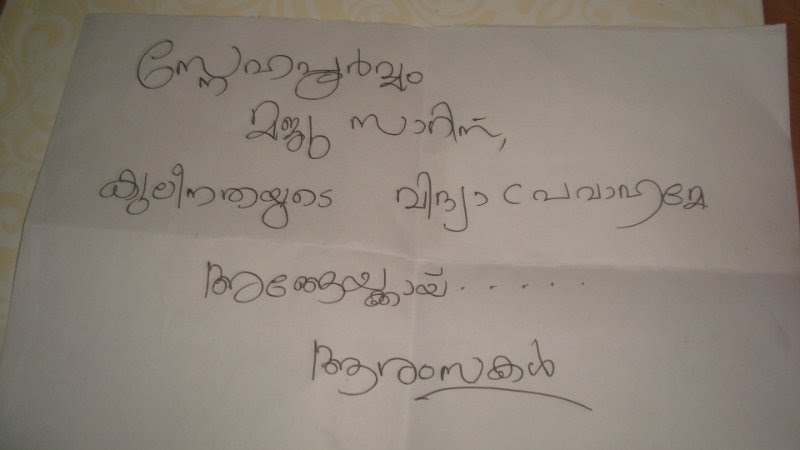 സ്നേഹപൂർവ്വം
മജു സാറിന്,
കുലീനതയുടെ വിദ്യാ പ്രവാഹമേ
അങ്ങേയ്ക്കായ് . . . . .
ആശംസകൾ